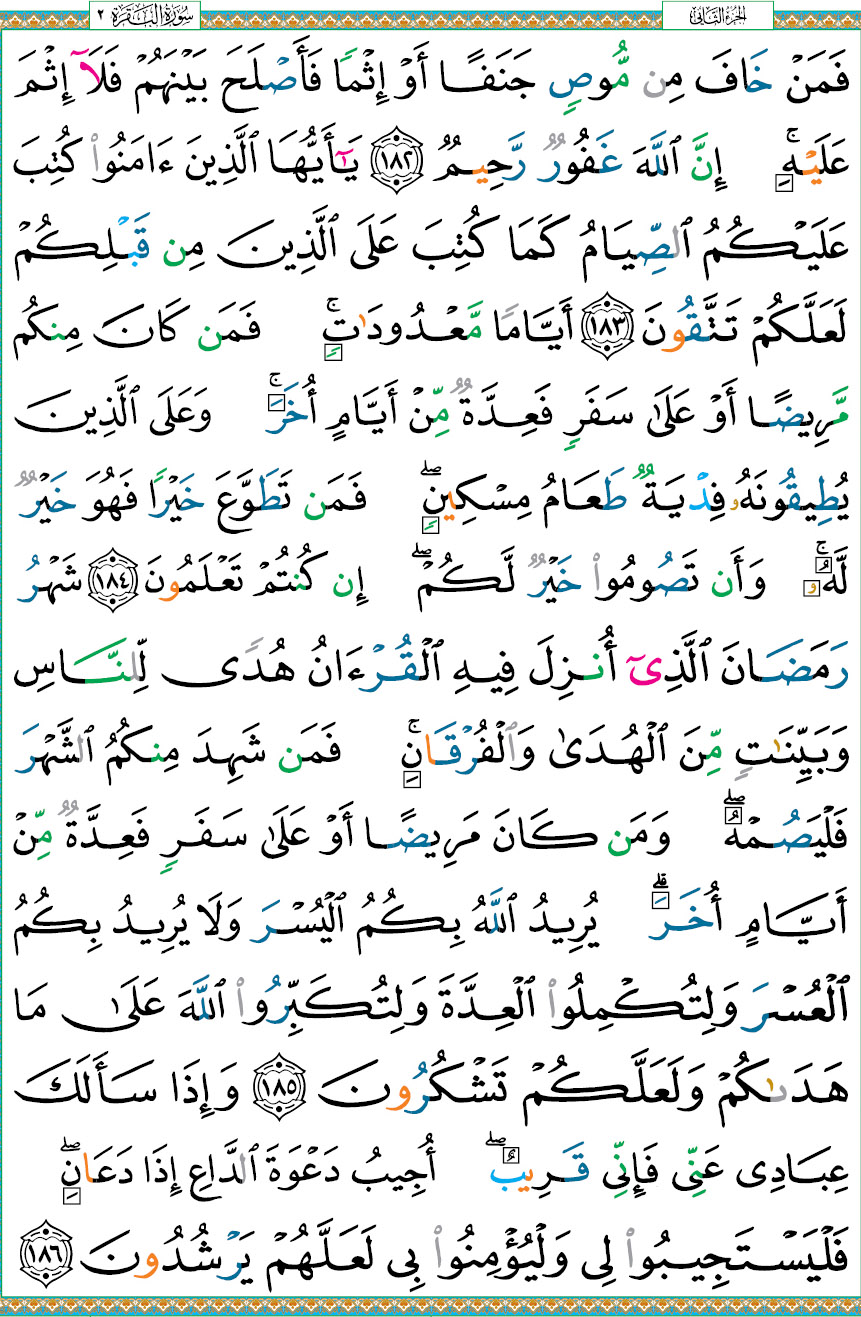 الجزء الثاني
سورة البقرة ٢
فَمَنْ خَافَ مِن مُّوصٍ جَنَفًا أَوْ إِثْمًا فَأَصْلَحَ بَيْنَهُمْ فَلَآ إِثْمَ
عَلَيْهِۚ إِنَّ ٱللَّهَ غَفُورٌ رَّحِيمٌ ١٨٢ يَـٰٓأَيُّهَا ٱلَّذِينَ ءَامَنُوا۟ كُتِبَ
عَلَيْكُمُ ٱلصِّيَامُ كَمَا كُتِبَ عَلَى ٱلَّذِينَ مِن قَبْلِكُمْ
لَعَلَّكُمْ تَتَّقُونَ ١٨٣ أَيَّامًا مَّعْدُودَٰتٍۚ فَمَن كَانَ مِنكُم
مَّرِيضًا أَوْ عَلَىٰ سَفَرٍ فَعِدَّةٌ مِّنْ أَيَّامٍ أُخَرَۚ وَعَلَى ٱلَّذِينَ
يُطِيقُونَهُۥ فِدْيَةٌ طَعَامُ مِسْكِينٍۖ فَمَن تَطَوَّعَ خَيْرًا فَهُوَ خَيْرٌ
لَّهُۥۚ وَأَن تَصُومُوا۟ خَيْرٌ لَّكُمْۖ إِن كُنتُمْ تَعْلَمُونَ ١٨٤ شَهْرُ
رَمَضَانَ ٱلَّذِىٓ أُنزِلَ فِيهِ ٱلْقُرْءَانُ هُدًى لِّلنَّاسِ
وَبَيِّنَـٰتٍ مِّنَ ٱلْهُدَىٰ وَٱلْفُرْقَانِۚ فَمَن شَهِدَ مِنكُمُ ٱلشَّهْرَ
فَلْيَصُمْهُۖ وَمَن كَانَ مَرِيضًا أَوْ عَلَىٰ سَفَرٍ فَعِدَّةٌ مِّنْ
أَيَّامٍ أُخَرَۗ يُرِيدُ ٱللَّهُ بِكُمُ ٱلْيُسْرَ وَلَا يُرِيدُ بِكُمُ
ٱلْعُسْرَ وَلِتُكْمِلُوا۟ ٱلْعِدَّةَ وَلِتُكَبِّرُوا۟ ٱللَّهَ عَلَىٰ مَا
هَدَىٰكُمْ وَلَعَلَّكُمْ تَشْكُرُونَ ١٨٥ وَإِذَا سَأَلَكَ
عِبَادِى عَنِّى فَإِنِّى قَرِيبٌۖ أُجِيبُ دَعْوَةَ ٱلدَّاعِ إِذَا دَعَانِۖ
فَلْيَسْتَجِيبُوا۟ لِى وَلْيُؤْمِنُوا۟ بِى لَعَلَّهُمْ يَرْشُدُونَ ١٨٦